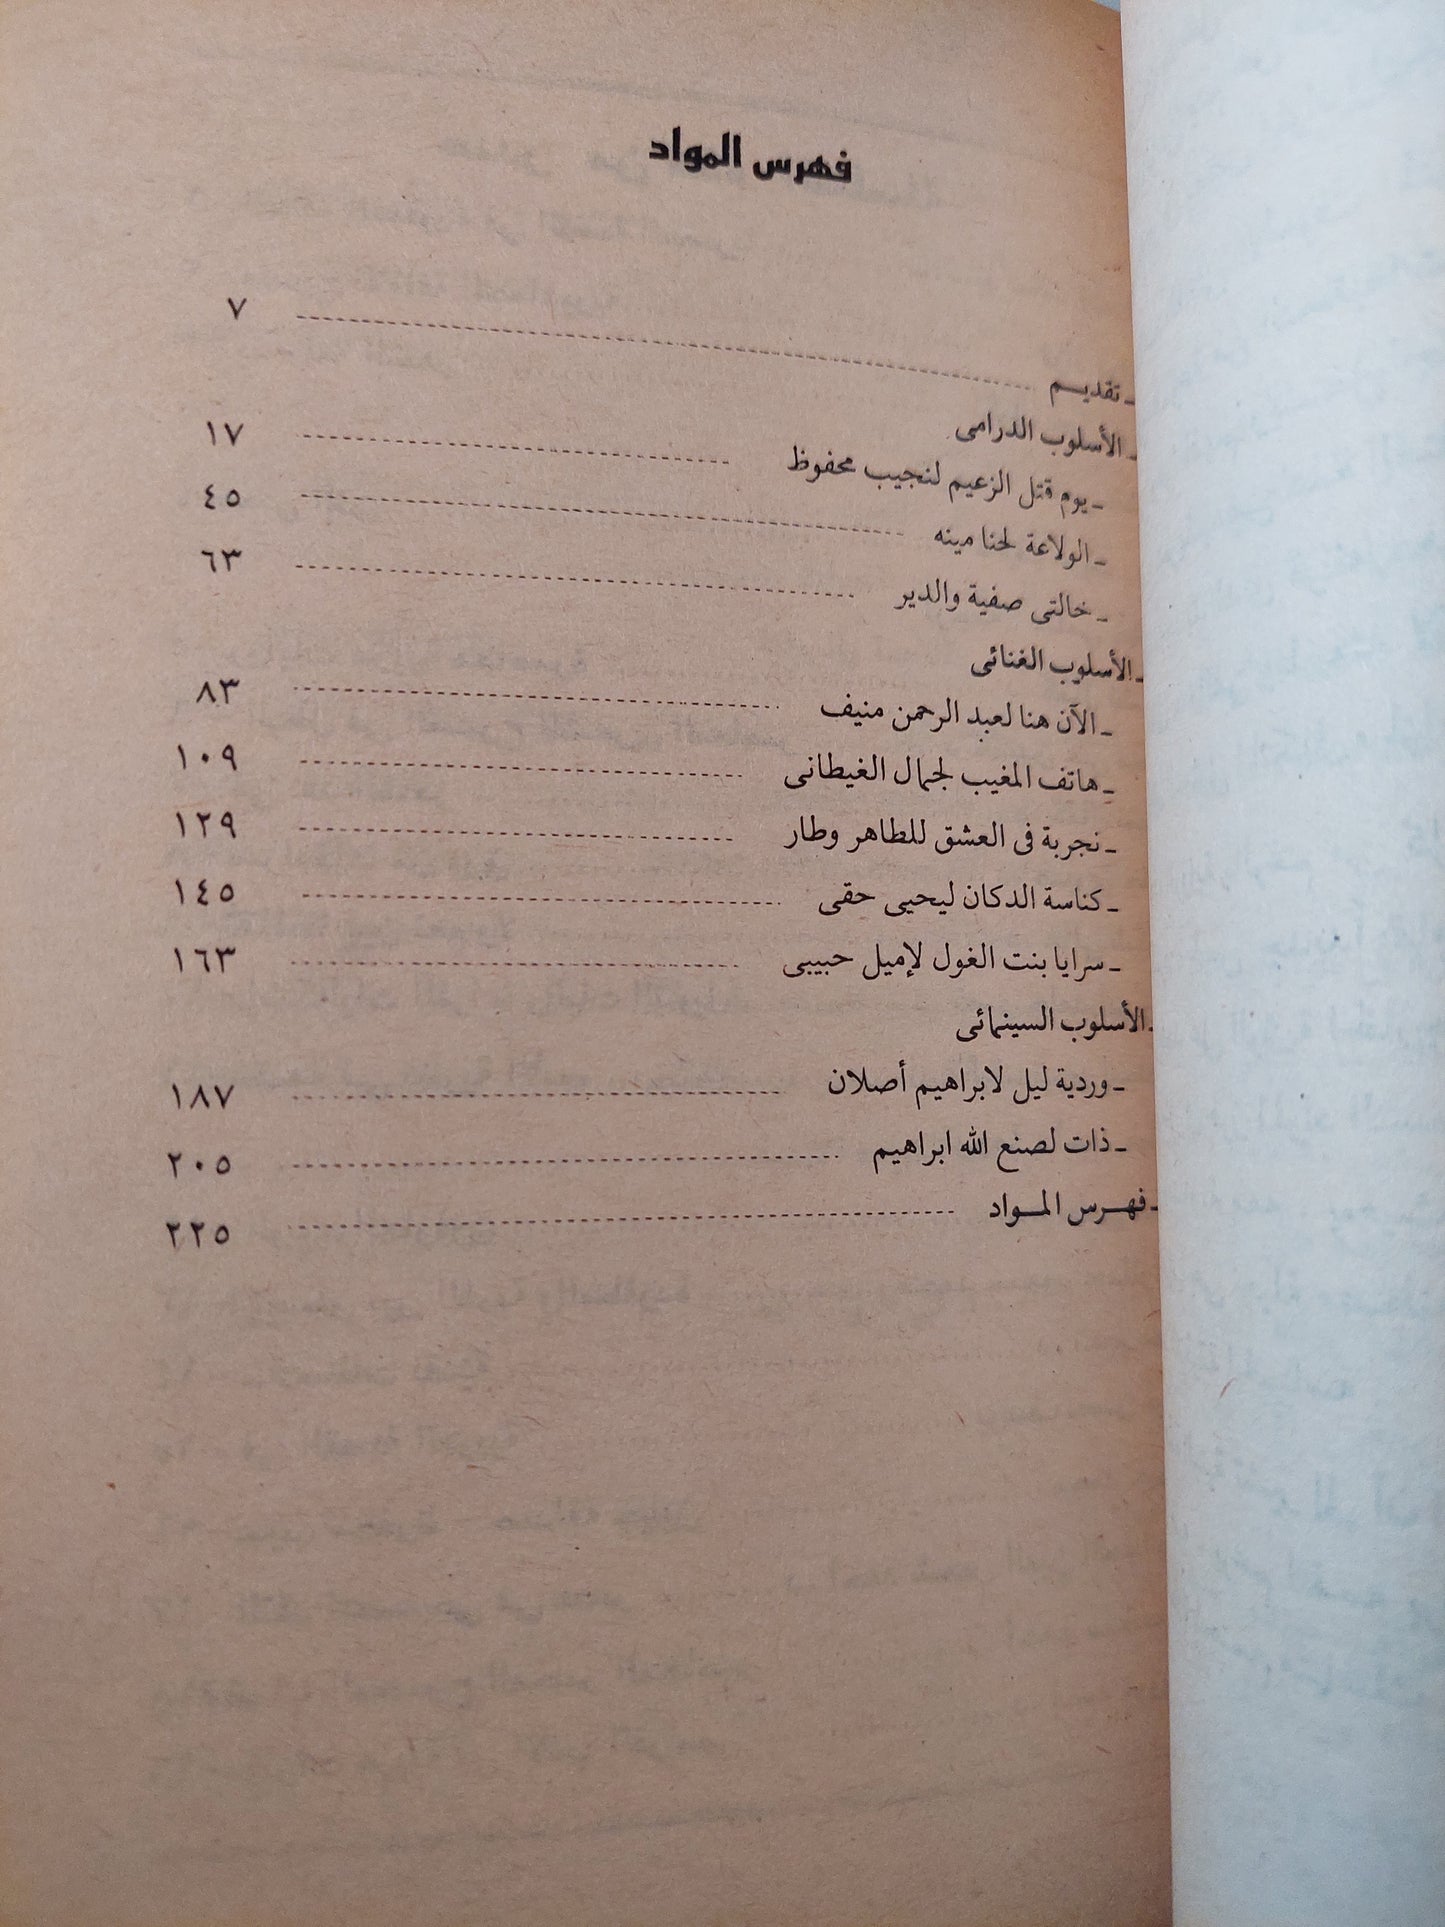 فهرس المواد
ـ تقديـــم ٧
ـ الأسلوب الدرامى
ـ يوم قتل الزعيم لنجيب محفوظ ١٧
ـ الولاعة لحنا مينه ٤٥
ـ خالتى صفية والدير ٦٣
ـ الأسلوب الغنائى
ـ الآن هنا لعبد الرحمن منيف ٨٣
ـ هاتف المغيب لجمال الغيطانى ١٠٩
ـ نجربة فى العشق للطاهر وطار ١٢٩
ـ كناسة الدكان ليحيى حقى ١٤٥
ـ سرايا بنت الغول لإميل حبيبى ١٦٣
ـ الأسلوب السينمائى
ـ وردية ليل لابراهيم أصلان ١٨٧
ـ ذات لصنع الله ابراهيم ٢٠٥
ـ فهـرس المـواد ٢٢٥